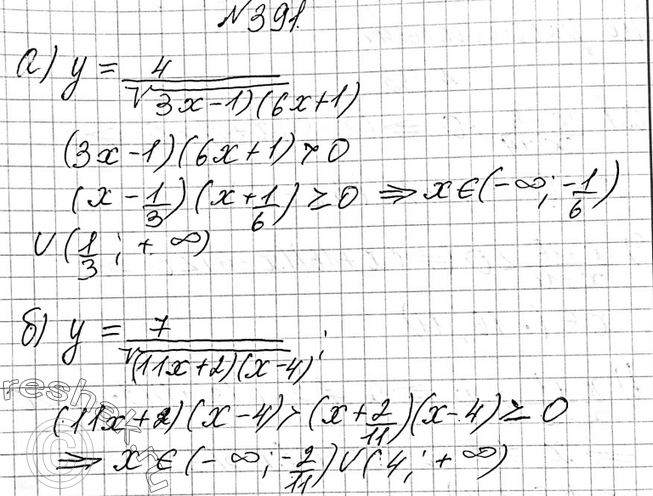 №391.
а) y = 4/√(3x-1)(6x+1)
(3x-1)(6x+1)>0
(x-1/3)(x+1/6)≥0 ⇒ x∈(-∞; -1/6)
∪(1/3; +∞)
б) y = 7/√(11x+2)(x-4);
(11x+2)(x-4)>(x+2/11)(x-4)≥0
⇒ x∈(-∞; -2/11)∪(4; +∞)
reshe